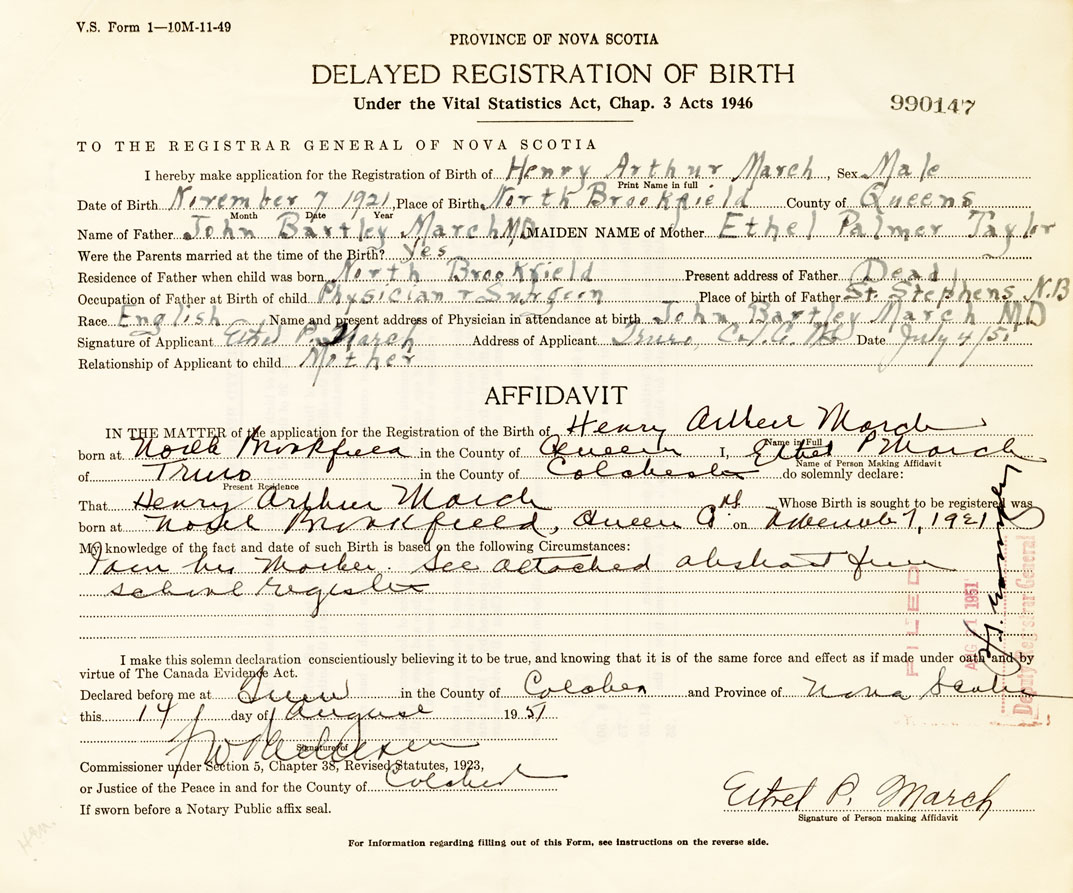 V.S. Form 1—10M-11-49
PROVINCE OF NOVA SCOTIA
DELAYED REGISTRATION OF BIRTH
Under the Vital Statistics Act, Chap. 3 Acts 1946
990147
TO THE REGISTRAR GENERAL OF NOVA SCOTIA
I hereby make application for the Registration of Birth of Henry Arthur March, Sex Male
Print Name in full
Date of Birth November 7 1921, Place of Birth North Brookfield County of Queens
Month Date Year
Name of Father John Bartley March MD MAIDEN NAME of Mother Ethel Palmer Taylor
Were the Parents married at the time of the Birth? Yes
Residence of Father when child was born North Brookfield Present address of Father Dead
Occupation of Father at Birth of child Physician & Surgeon Place of birth of Father St. Stephens, N.B
Race English Name and present address of Physician in attendance at birth John Bartley March MD
Signature of Applicant Ethel P. March Address of Applicant Truro, Col. Co. NS Date July 4/51
Relationship of Applicant to child Mother
AFFIDAVIT
IN THE MATTER of the application for the Registration of the Birth of Henry Arthur March
Name in Full
born at North Brookfield in the County of Queens I, Ethel P March
Name of Person Making Affidavit
of Truro in the County of Colchester do solemnly declare:
Present Residence
That Henry Arthur March Whose Birth is sought to be registered was
born at North Brookfield, Queen Co. NS on November 7, 1921
My knowledge of the fact and date of such Birth is based on the following Circumstances:
I am his Mother. See attached abstract from
school register
FILED
AUG 1951
Deputy Registrar General
I make this solemn declaration conscientiously believing it to be true, and knowing that it is of the same force and effect as if made under oath and by
virtue of The Canada Evidence Act.
Declared before me at Truro in the County of Colchester and Province of Nova Scotia
this 14 day of August 1951
Signature of
Commissioner under Section 5, Chapter 38, Revised Statutes, 1923,
or Justice of the Peace in and for the County of Colchester
If sworn before a Notary Public affix seal.
Ethel P. March
Signature of Person making Affidavit
For Information regarding filling out of this Form, see instructions on the reverse side.